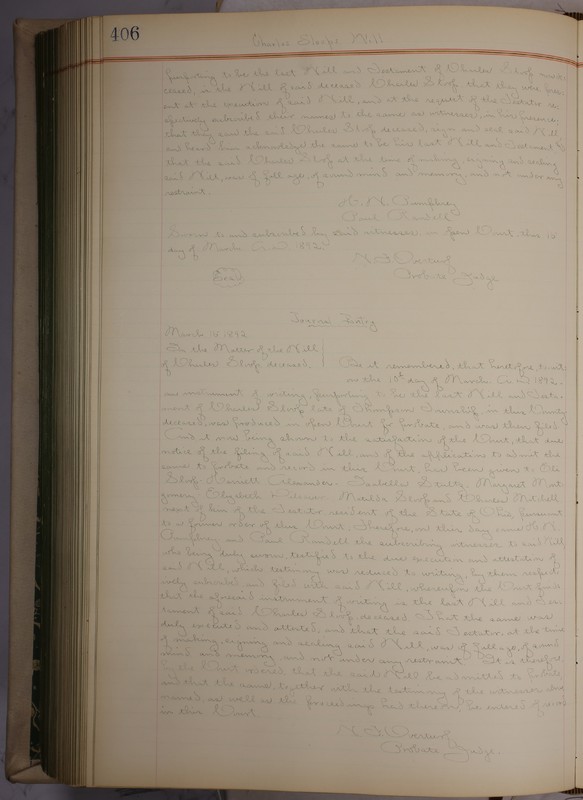 406
Charles Will
purporting to be the last Will and Testament of Charles
ceased, is the Will of said deceased Charles that they were pres-
ent at the execution of said Will, and at the request of the Testator re-
spectively subscribed their names to the same as witnesses, in his presence,
that they saw the said Charles deceased, sign and seal said Will
and heard him acknowledge the same to be his last Will and Testament &
that the said Charles at the time of making, signing and sealing
said Will, was of full age, of sound mind and memory, and not under any
restraint.
Paul Randall
Sworn to and subscribed by said witnesses in open Court, this
day of March A.D. 1892
Seal
Probate Judge
March 1892
In the Matter of the Will
of Charles deceased.
Be it remembered, that heretofore, to wit:
on the day of March A.D. 1892.
an instrument of writing, purporting to be the last Will and Testa-
ment of Charles late of Thompson Township in this County
deceased, was produced in open Court for probate, and was then filed
And it now being shown to the satisfaction of the Court, that due
notice of the filing of said Will, and of the application to admit the
same to probate and record in this Court, has been given to
Harriett Alexander Isabella Margaret Mont-
gomery Elizabeth Matilda and Charles Mitchell
next of kin of the Testator resident of the State of Ohio, pursuant
to a former order of this Court. Therefore, on this day, came
and Paul Randall the subscribing witnesses to said Will
who being duly sworn, testified to the due execution and attestation of
said Will, which testimony was reduced to writing, by them respect-
ively subscribed and filed with said Will, whereupon the Court finds
that the aforesaid instrument of writing is the last Will and Tes-
tament of said Charles deceased. That the same was
duly executed and attested, and that the said Testator at the time
of making, signing and sealing said Will, was of full age, of sound
mind and memory and not under any restraint. It is therefore
by the Court ordered that the said Will be admitted to probate
and that the same together with the testimony of the witnesses
named, as well as the proceedings had thereon be entered of record
in this Court.
Probate Judge.